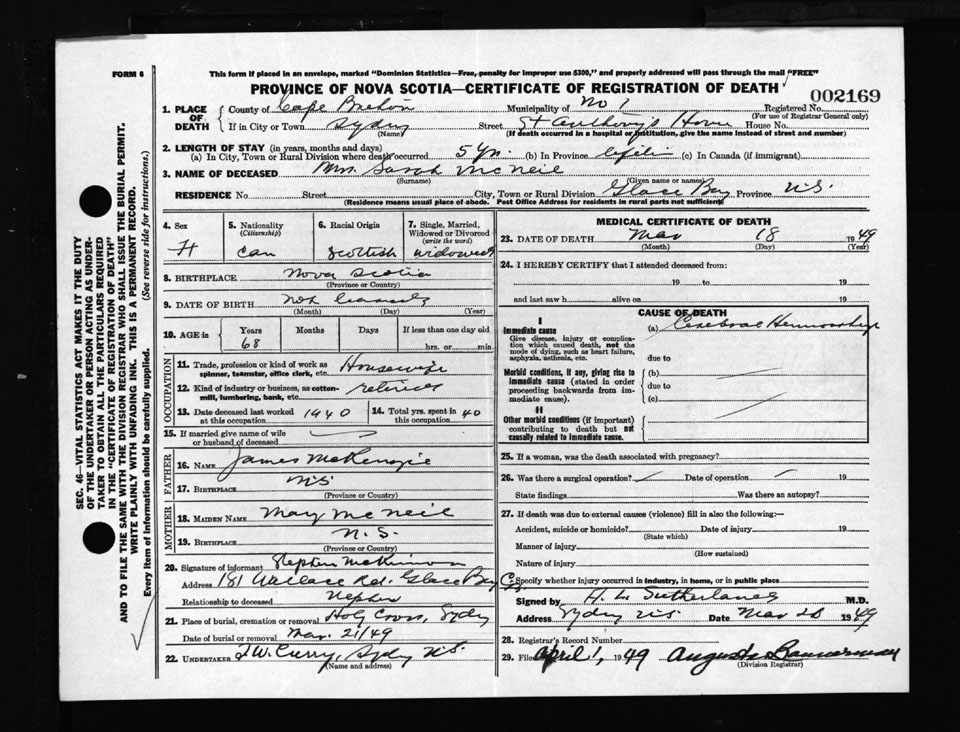 FORM 6
This form if placed in an envelope, marked "Dominion Statistics—Free, penalty for improper use $300," and properly addressed will pass through the mail "FREE"
PROVINCE OF NOVA SCOTIA—CERTIFICATE OF REGISTRATION OF DEATH
002169
1. PLACE OF DEATH
County of Cape Breton Municipality of No 1 Registered No.
(For use of Registrar General only)
If in City or Town Sydney Street St Anthony's Home House No.
(Name) (If death occurred in a hospital or institution, give the name instead of street and number)
2. LENGTH OF STAY (in years, months and days)
(a) In City, Town or Rural Division where death occurred 5 yrs. (b) In Province lifetime (c) In Canada (if immigrant)
3. NAME OF DECEASED Mrs. Sarah McNeil
(Surname) (Given name or names)
RESIDENCE No. Street City, Town or Rural Division Glace Bay Province N.S.
(Residence means usual place of abode. Post Office Address for residents in rural parts not sufficient)
4. Sex
5. Nationality (Citizenship)
6. Racial Origin
7. Single, Married, Widowed or Divorced (write the word)
Can Scottish Widowed
8. BIRTHPLACE Nova Scotia
(Province or Country)
9. DATE OF BIRTH not
(Month) (Day) (Year)
10. AGE in Years Months Days If less than one day old
68 hrs. or min.
OCCUPATION
11. Trade, profession or kind of work as spinner, teamster, office clerk, etc. Housewife
12. Kind of industry or business, as cotton-mill, lumbering, bank, etc. retired
13. Date deceased last worked at this occupation 1940 14. Total yrs. spent in this occupation 40
15. If married give name of wife or husband of deceased
FATHER
16. NAME James McKenzie
17. BIRTHPLACE N.S.
(Province or Country)
MOTHER
18. MAIDEN NAME Mary McNeil
19. BIRTHPLACE N.S.
(Province or Country)
20. Signature of informant Stephen McKinnon
Address 181 Wallace Rd. Glace Bay
Relationship to deceased Nephew
21. Place of burial, cremation or removal Holy Cross, Sydney
Date of burial or removal Mar. 21/49
22. UNDERTAKER T.W. Curry, Sydney N.S.
(Name and address)
MEDICAL CERTIFICATE OF DEATH
23. DATE OF DEATH Mar 18 1949
(Month) (Day) (Year)
24. I HEREBY CERTIFY that I attended deceased from:
19 to 19
and last saw h alive on 19
CAUSE OF DEATH
I
Immediate cause (a) Cerebral Hemorrhage
Give disease, injury or complication which caused death, not the mode of dying, such as heart failure, asphyxia, asthenia, etc.
due to
Morbid conditions, if any, giving rise to immediate cause (stated in order proceeding backwards from immediate cause).
(b)
due to
(c)
II
Other morbid conditions (if important) contributing to death but not causally related to immediate cause.
25. If a woman, was the death associated with pregnancy?
26. Was there a surgical operation? Date of operation 19
State findings Was there an autopsy?
27. If death was due to external causes (violence) fill in also the following:—
Accident, suicide or homicide? Date of injury 19
(State which)
Manner of injury
(How sustained)
Nature of injury
Specify whether injury occurred in industry, in home, or in public place
Signed by H. L. Sutherland M.D.
Address Sydney N.S. Date Mar 20 1949
28. Registrar's Record Number
29. Filed April 1, 1949 Augusta Bannerman
(Division Registrar)
SEC. 46—VITAL STATISTICS ACT MAKES IT THE DUTY
OF THE UNDERTAKER OR PERSON ACTING AS UNDER-
TAKER TO OBTAIN ALL THE PARTICULARS REQUIRED
IN THE "CERTIFICATE OF REGISTRATION OF DEATH"
AND TO FILE THE SAME WITH THE DIVISION REGISTRAR WHO SHALL ISSUE THE BURIAL PERMIT.
WRITE PLAINLY WITH UNFADING INK. THIS IS A PERMANENT RECORD.
Every item of information should be carefully supplied. (See reverse side for instructions.)